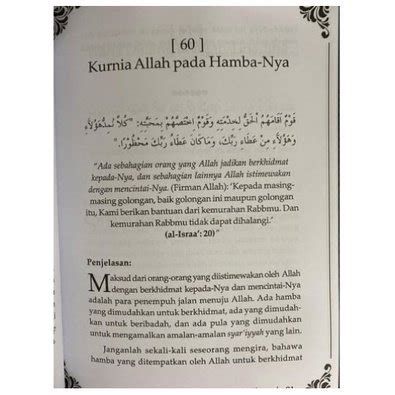 [ 60 ]
Kurnia Allah pada Hamba-Nya
قَوْمٌ أَقَامَهُمُ الْحَقُّ لِخِدْمَتِهِ وَقَوْمٌ اخْتَصَّهُمْ بِمَحَبَّتِهِ: "كُلًّا نُمِدُّ هَؤُلَاءِ
وَهَؤُلَاءِ مِنْ عَطَاءِ رَبِّكَ، وَمَا كَانَ عَطَاءُ رَبِّكَ مَحْظُورًا."
"Ada sebahagian orang yang Allah jadikan berkhidmat
kepada-Nya, dan sebahagian lainnya Allah istimewakan
dengan mencintai-Nya. (Firman Allah): 'Kepada masing-
masing golongan, baik golongan ini maupun golongan
itu, Kami berikan bantuan dari kemurahan Rabbmu. Dan
kemurahan Rabbmu tidak dapat dihalangi.'
(al-Israa': 20)"
Penjelasan:
Maksud dari orang-orang yang diistimewakan oleh Allah
dengan berkhidmat kepada-Nya dan mencintai-Nya
adalah para penempuh jalan menuju Allah. Ada hamba
yang dimudahkan untuk berkhidmat, ada yang dimudah-
kan untuk beribadah, dan ada pula yang dimudahkan
untuk mengamalkan amalan-amalan syar'iyyah yang lain.
Janganlah sekali-kali seseorang mengira, bahawa
hamba yang ditempatkan oleh Allah untuk berkhidmat